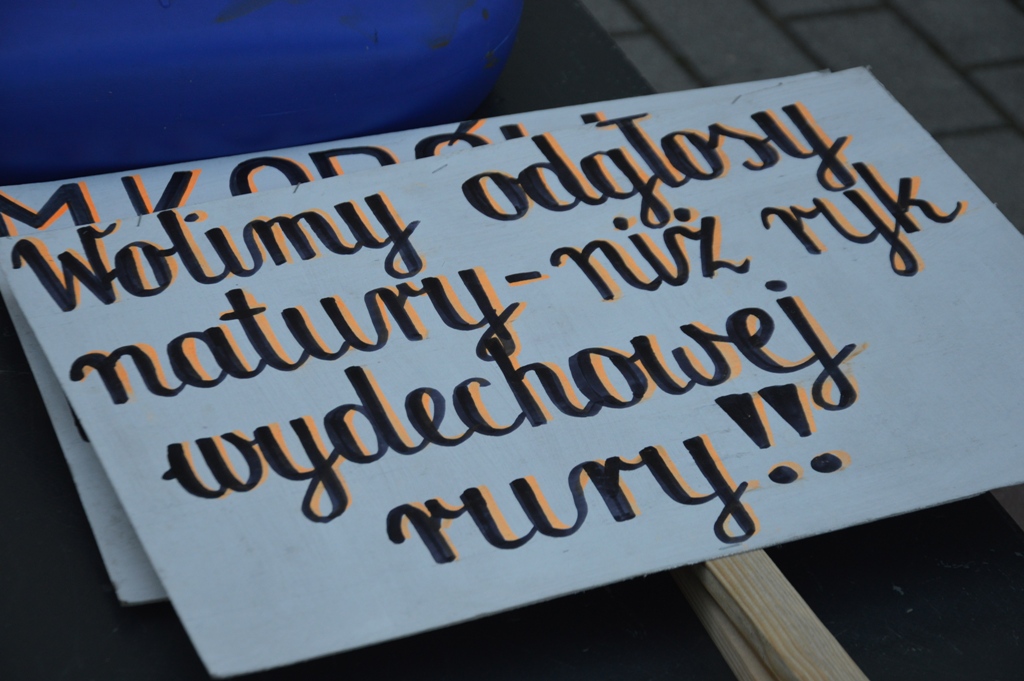 Wolimy odgłosy
natury - niż ryk
wydechowej
rury!!